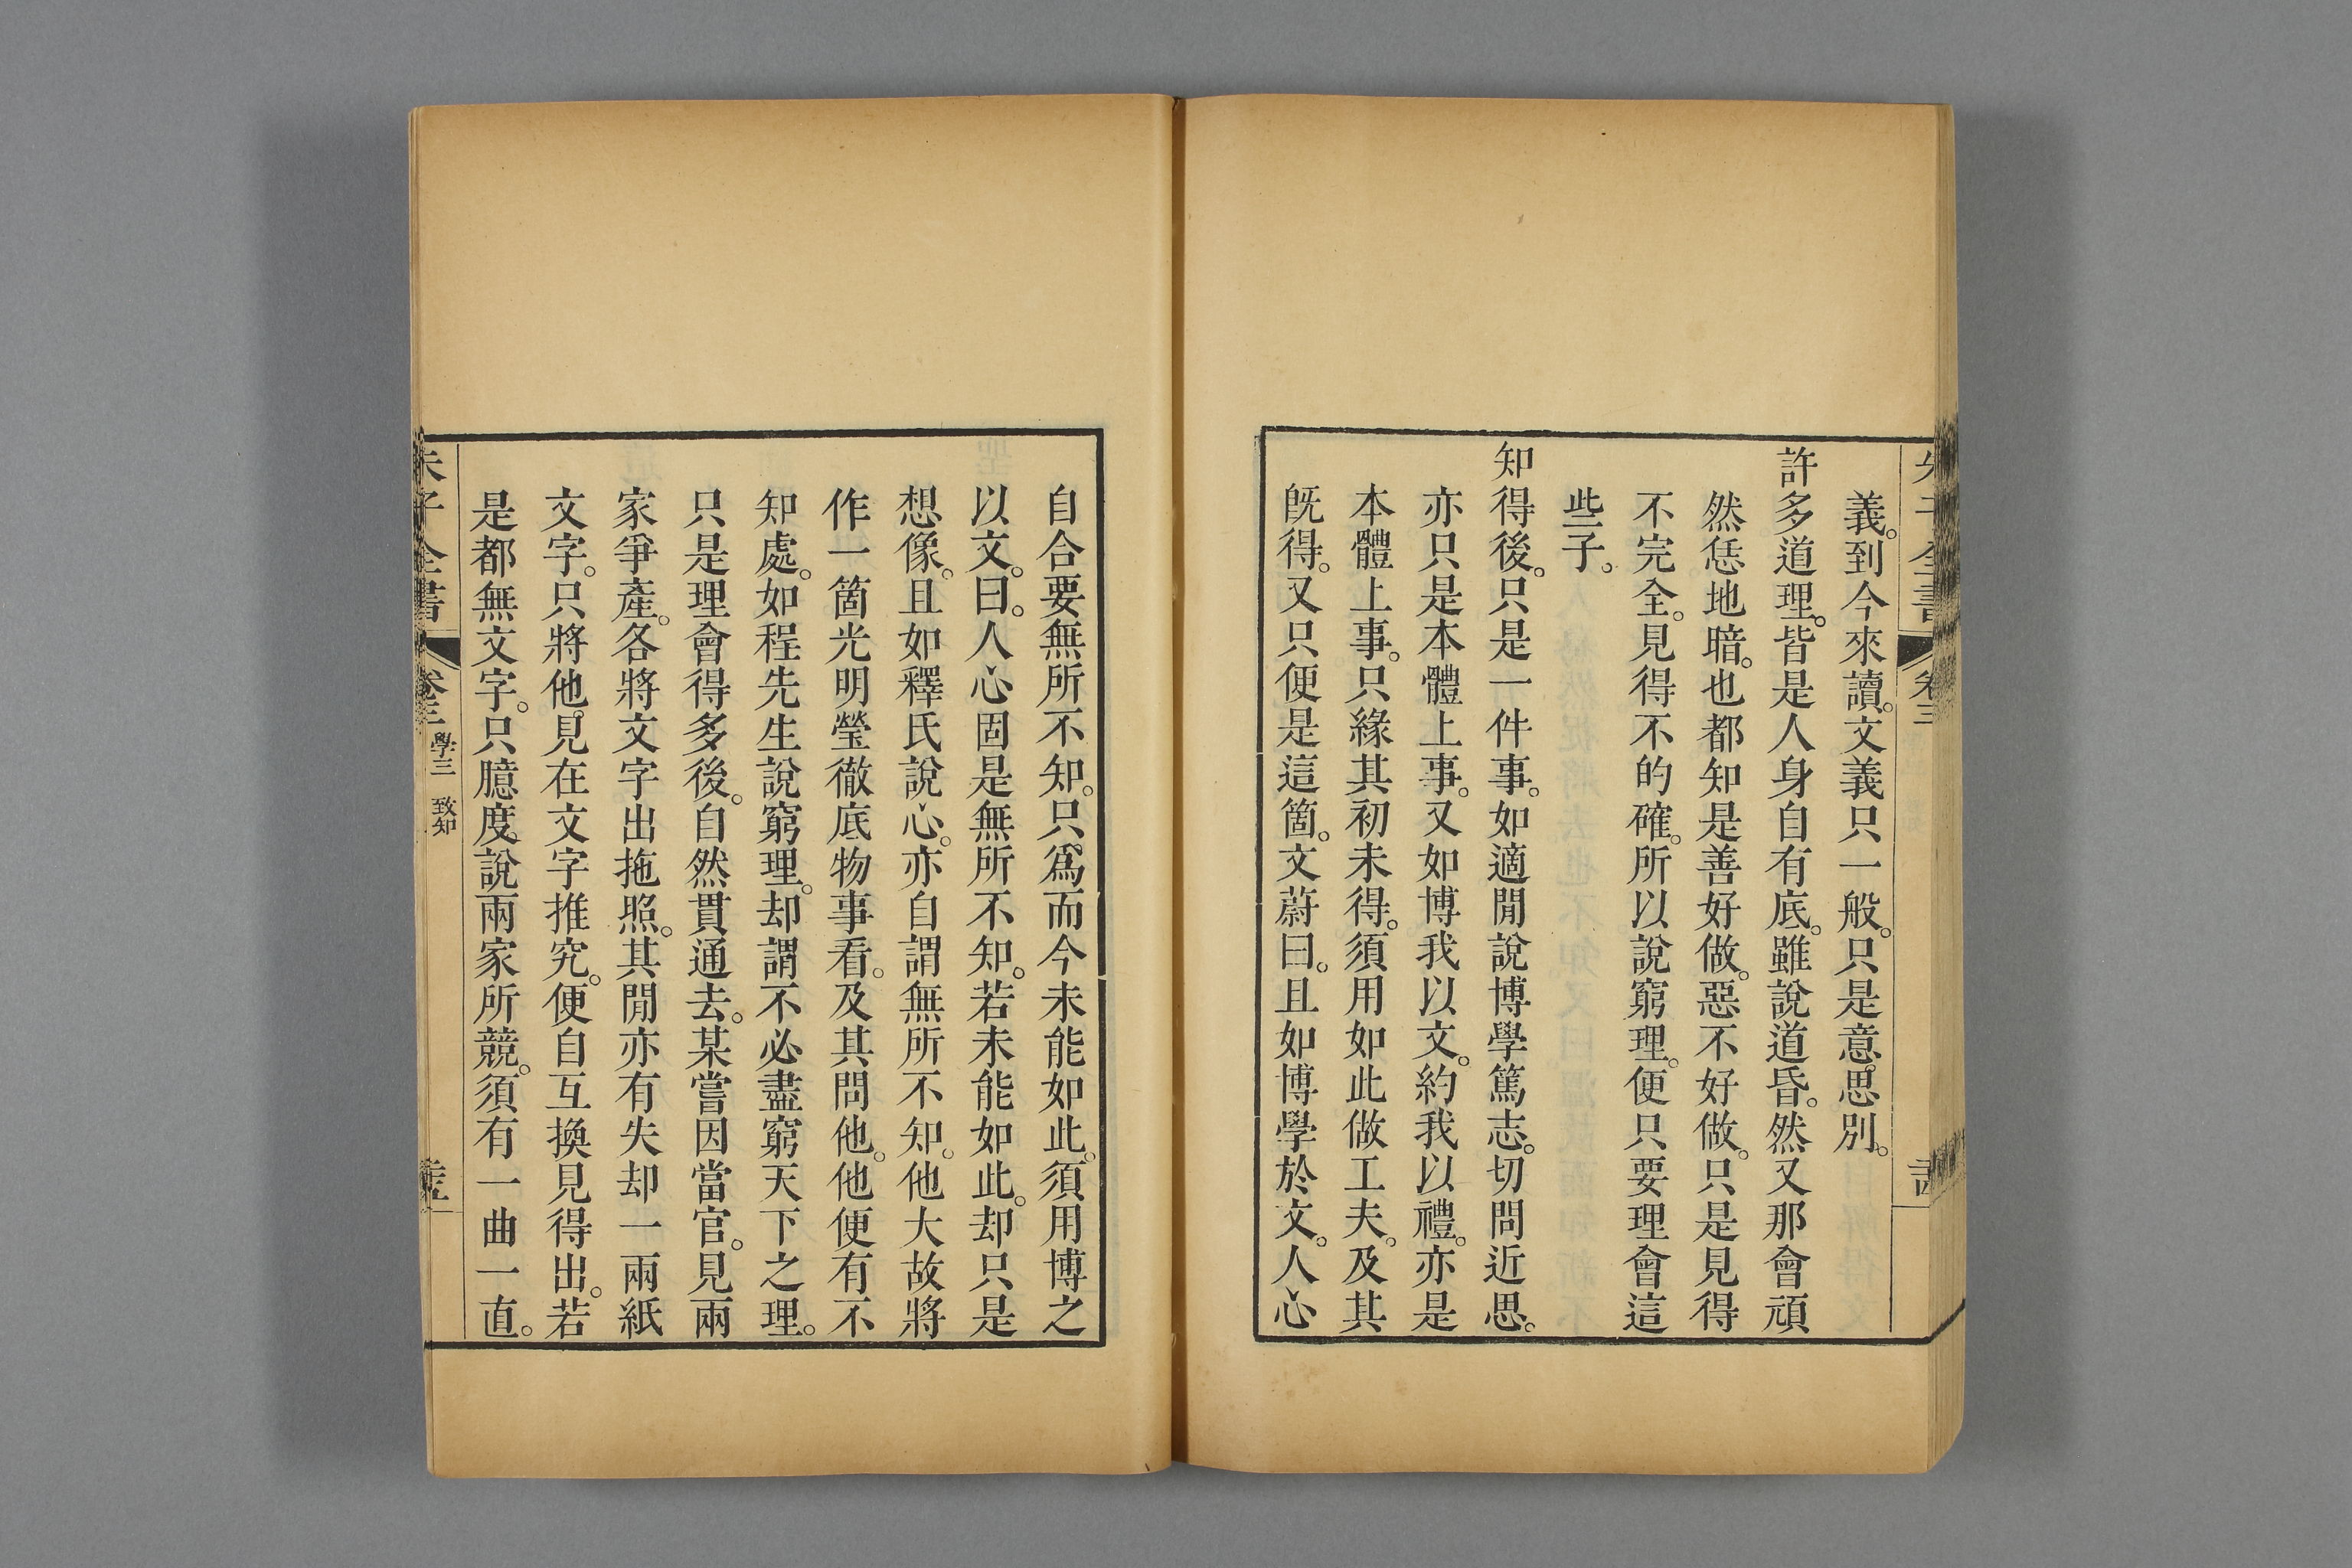 朱子全書 卷三
義。到今來讀。文義只一般。只是意思別。
許多道理。皆是人身自有底。雖說道昏。然又那會頑
然恁地暗。也都知是善好做。惡不好做。只是見得
不完全。見得不的確。所以說窮理。便只要理會這
些子。
知得後。只是一件事。如適閒說博學篤志。切問近思。
亦只是本體上事。又如博我以文。約我以禮。亦是
本體上事。只緣其初未得。須用如此做工夫。及其
旣得。又只便是這箇。文蔚曰。且如博學於文。人心
自合要無所不知。只爲而今未能如此。須用博之
以文。曰。人心固是無所不知。若未能如此。却只是
想像。且如釋氏說心。亦自謂無所不知。他大故將
作一箇光明瑩徹底物事看。及其問他。他便有不
知處。如程先生說窮理。却謂不必盡窮天下之理。
只是理會得多後。自然貫通去。某嘗因當官。見兩
家爭產。各將文字出拖照。其閒亦有失却一兩紙
文字。只將他見在文字推究。便自互換見得出。若
是都無文字。只臆度說兩家所競。須有一曲一直。
朱子全書 卷三 學三 致知